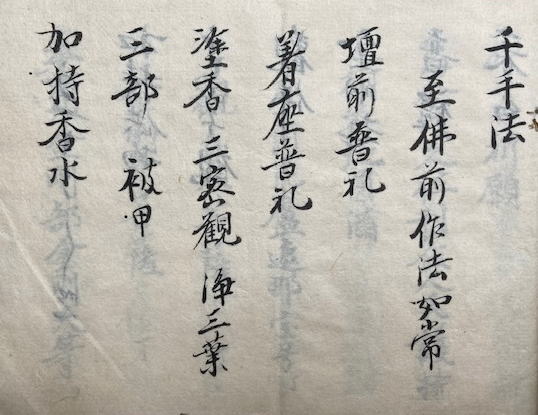 千手法
至佛前作法如常
壇前普礼
着座普礼
塗香 三密觀 浄三業
三部 被甲
加持香水